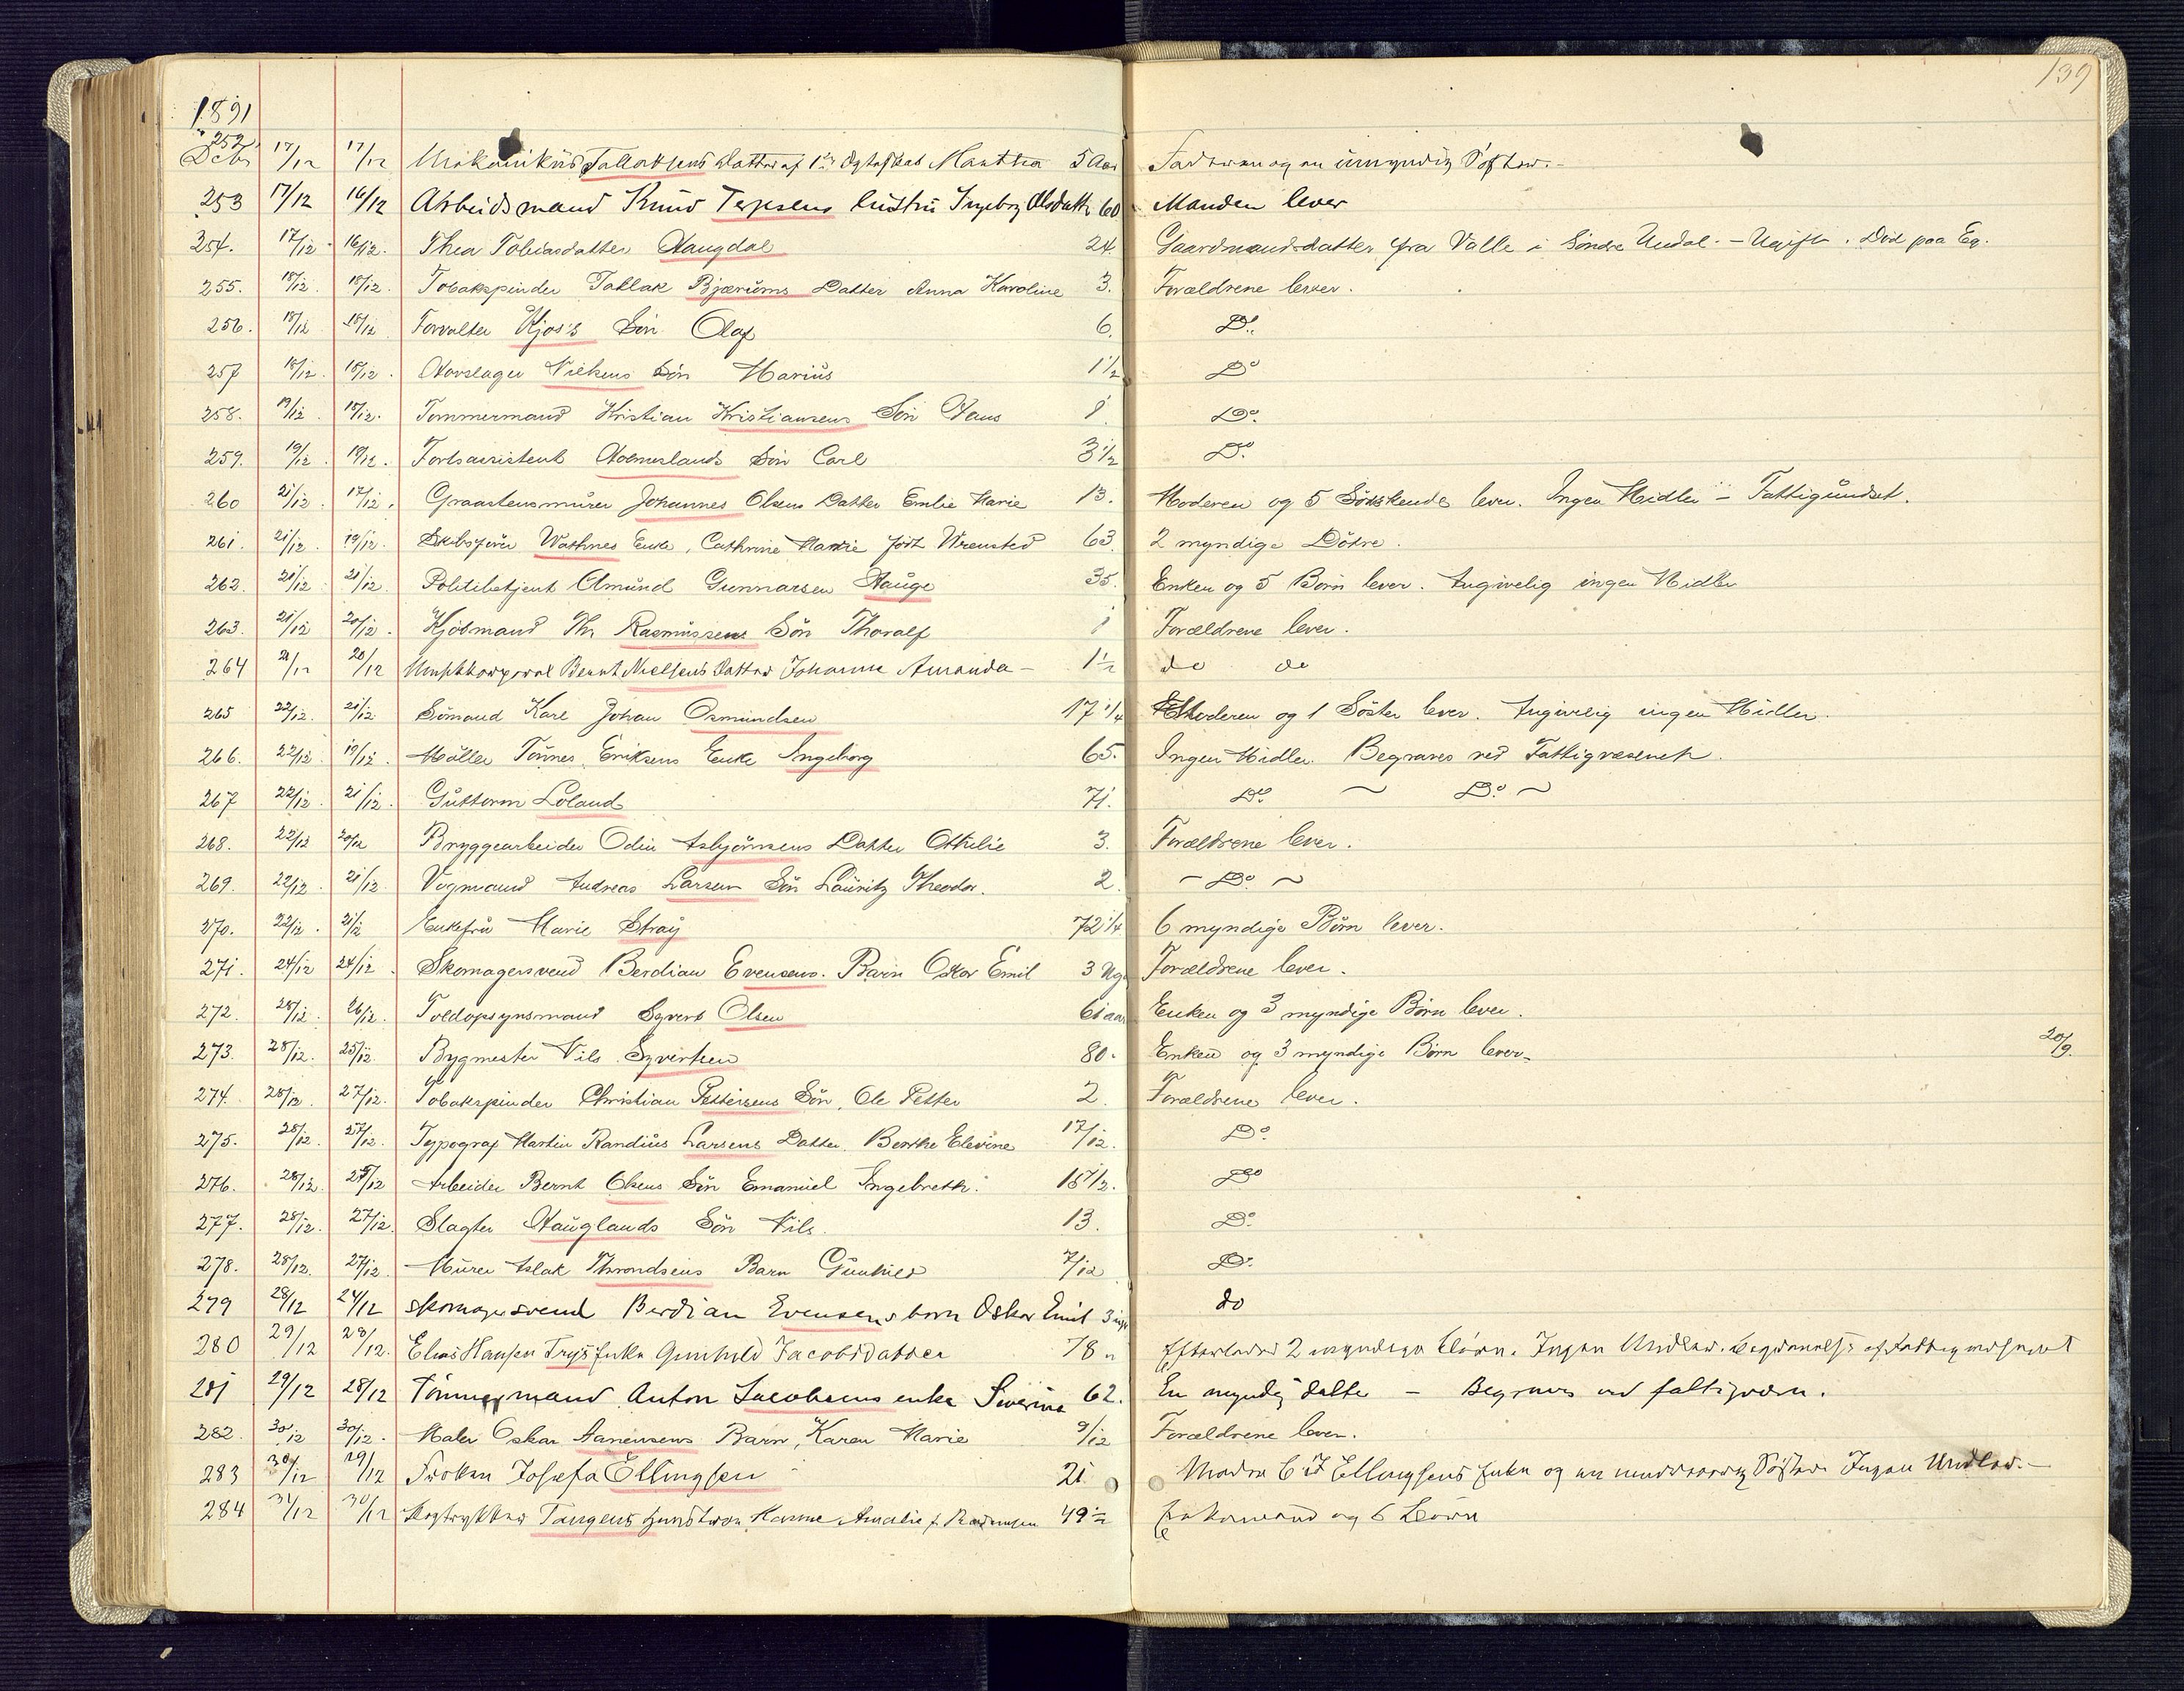 139
1891
Decbr 252. 17/12 17/12 Mekanikus Tallaksens Datter af 1ste Ægteskab Martha 5 Aar Faderen og en umyndig Søster.-
253 17/12 16/12 Arbeidsmand Knud Terjesens hustru Ingeborg Olsdatter 60 Manden lever
254. 17/12 16/12. Thea Tobiasdatter Haugdal 24. Gaardmandsdatter fra Valle i Søndre Undal. - Ugift. Død paa Eg.
255. 18/12. 18/12. Tobakspinder Tallak Bjærums Datter Anna Karoline 3. Forældrene lever.
256. 18/12 18/12 Forvalter Kjos's Søn Olaf 6. Do.
257 18/12. 18/12. Hovslager Nielsens Søn Marius 1 1/2 Do
258. 19/12. 18/12. Tømmermand Kristian Kristiansens Søn Hans 1. Do.
259. 19/12. 19/12. Fortsassistent Holmeslands Søn Carl 3 1/2 Do.
260 21/12. 17/12. Graastensmurer Johannes Olsens Datter Emlie Marie 13. Moderen og 5 Søskende lever. Ingen Midler - Fattigunderst.
261. 21/12. 19/12. Skibsfører Wathnes Enke, Cathrine Marie født Wrensted 63. 2 myndige Døtre.
262. 21/12 21/12. Politibetjent Omund Gunnarsen Hauge 35. Enken og 5 Børn lever. Angivelig ingen Midler
263. 21/12 20/12. Kjøbmand Th. Rasmussens Søn Thoralf 1 Forældrene lever.
264 21/12 20/12 Underkorporal Bernt Nielsens Datter Johanne Amanda - 1 1/2 do do
265 22/12. 21/12 Sømand Karl Johan Osmundsen 17 1/4 Moderen og 1 Søster lever. Angivelig ingen Midler.
266. 22/12 19/12. Møller Tønnes Eriksens Enke Ingeborg 65. Ingen Midler. Begraves ved Fattigvæsenet.
267 22/12. 21/12. Guttorm Loland 71. Do. ~ Do. ~
268. 22/12 20/12 Bryggearbeider Odin Asbjørnsens Datter Othilie 3. Forældrene lever.
269. 22/12. 21/12 Vognmand Andreas Larsens Søn Lauritz Theodor. 2. - Do. ~
270. 22/12. 21/12 Enkefru Marie Stray 72 1/4 6 myndige Børn lever.
271. 24/12 24/12. Skomagersvend Berdian Evensens. Barn Oskar Emil 3 Ug. Forældrene lever.
272. 28/12. 26/12. Toldopsynsmand Syvert Olsen 61 aar Enken og 3 myndige Børn lever.
273. 28/12. 25/12. Bygmester Nils Syvertsen 80. Enken og 3 myndige Børn lever. 20/9.
274. 28/12. 27/12. Tobakspinder Christian Pettersens Søn, Ole Petter 2. Forældrene lever.
275. 28/12. 27/12. Typograf Martin Randius Larsens Datter. Berthe Elevine 17/12. Do.
276. 28/12. 27/12 Arbeider Bernt Olsens Søn Emanuel Ingebreth. 16 1/2. Do
277. 28/12. 27/12. Slagter Hauglands Søn Nils. 13. Do.
278. 28/12. 27/12. Murer Aslak Throndsens Barn Gunhild 7/12 Do.
279 28/12 24/12 skomagersvend Berdian Evensens barn Oskar Emil 3 uger do
280 29/12 28/12. Elias Hansen Trys Enke Gunhild Jacobsdatter 78 Efterlader 2 myndige Børn. Ingen Midler. Begravelse af Fattigvæsenet
281 29/12 28/12 Tømmermand Anton Jacobsens enke Severine 62. En myndig datter - Begraves ved fattigvæsn.
282. 30/12 30/12. Maler Oskar Aanensens Barn, Karen Marie 9/12 Forældrene lever.
283 30/12 29/12 Frøken Josefa Ellingsen 21 Moder Ellingsens Enke og en Søster. Ingen Midler.-
284 31/12 30/12 Bogtrykker Tangens Hustru Hanne Amalie f. Rasmusen 49 1/2 Enkemand og 6 Børn